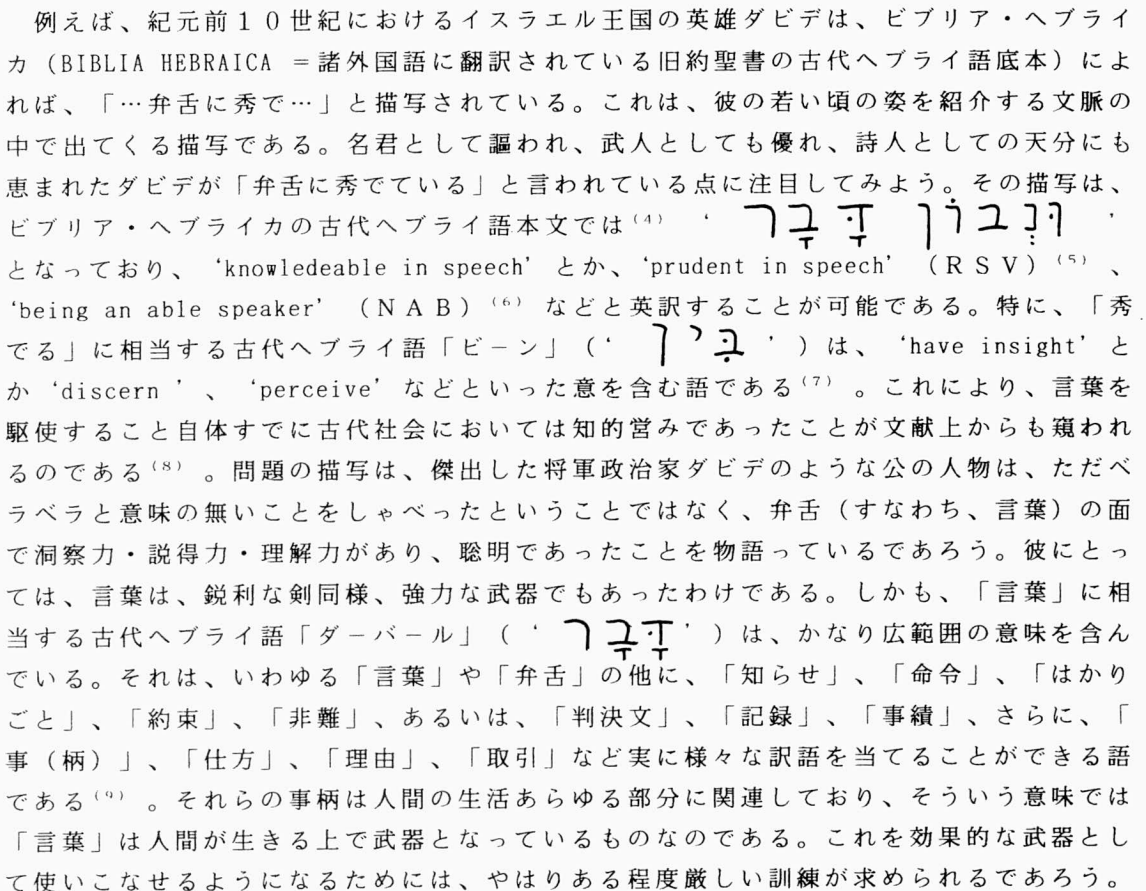 例えば、紀元前１０世紀におけるイスラエル王国の英雄ダビデは、ビブリア・ヘブライ
カ（BIBLIA HEBRAICA ＝諸外国語に翻訳されている旧約聖書の古代ヘブライ語底本）によ
れば、「…弁舌に秀で…」と描写されている。これは、彼の若い頃の姿を紹介する文脈の
中で出てくる描写である。名君として謳われ、武人としても優れ、詩人としての天分にも
恵まれたダビデが「弁舌に秀でている」と言われている点に注目してみよう。その描写は、
ビブリア・ヘブライカの古代ヘブライ語本文では(4) ‘ וּנְבוֹן דָּבָר ’
となっており、‘knowledeable in speech’ とか、‘prudent in speech’ （ＲＳＶ）(5) 、
‘being an able speaker’ （ＮＡＢ）(6) などと英訳することが可能である。特に、「秀
でる」に相当する古代ヘブライ語「ビーン」（‘ בִּין ’）は、‘have insight’ と
か ‘discern ’、 ‘perceive’ などといった意を含む語である(7) 。これにより、言葉を
駆使すること自体すでに古代社会においては知的営みであったことが文献上からも窺われ
るのである(8) 。問題の描写は、傑出した将軍政治家ダビデのような公の人物は、ただべ
ラベラと意味の無いことをしゃべったということではなく、弁舌（すなわち、言葉）の面
で洞察力・説得力・理解力があり、聡明であったことを物語っているであろう。彼にとっ
ては、言葉は、鋭利な剣同様、強力な武器でもあったわけである。しかも、「言葉」に相
当する古代ヘブライ語「ダーバール」（‘ דָּבָר ’）は、かなり広範囲の意味を含ん
でいる。それは、いわゆる「言葉」や「弁舌」の他に、「知らせ」、「命令」、「はかり
ごと」、「約束」、「非難」、あるいは、「判決文」、「記録」、「事績」、さらに、「
事（柄）」、「仕方」、「理由」、「取引」など実に様々な訳語を当てることができる語
である(9) 。それらの事柄は人間の生活あらゆる部分に関連しており、そういう意味では
「言葉」は人間が生きる上で武器となっているものなのである。これを効果的な武器とし
て使いこなせるようになるためには、やはりある程度厳しい訓練が求められるであろう。